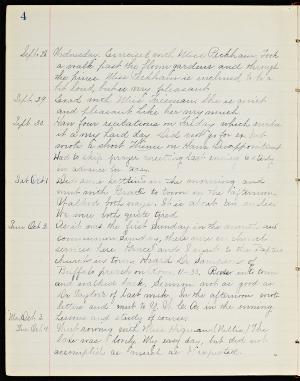 4
Sept. 28 Wednesday. Exercised with Miss Peckham. Took
a walk past the flower gardens and through
the pines. Miss Peckham is inclined to be a
bit loud, but is very pleasant.
Sept. 29 Exed with Miss Freeman. She is quiet
and pleasant. Like her very much.
Sept. 30 Have four recitations on Friday which makes
it a my hard day. Did not go for ex. but
wrote to short
Had to skip prayer meeting last evening to study
in advance for
Sat Oct 1 Did some in the morning and
went with Grace to town in the afternoon.
Walked both ways. It is about six miles.
We were both quite tired.
Sun Oct 2 As it was the first Sunday in the month, and
communion Sunday, there were no church
services here. Grace and I went to the Baptist
church in town. Heard Dr.
Buffalo preach on Rom. 11-33. Rode into town
and walked back. Sermon not as good as
Dr. Taylor's of last week. In the afternoon wrote
letters and went to Y. W. C. A. in the evening.
Mon Oct 3 Lessons and study of course.
Tue Oct 4 Went rowing with Miss (Nellie) The
lake was lovely. My easy day, but did not
accomplish as much as I expected.